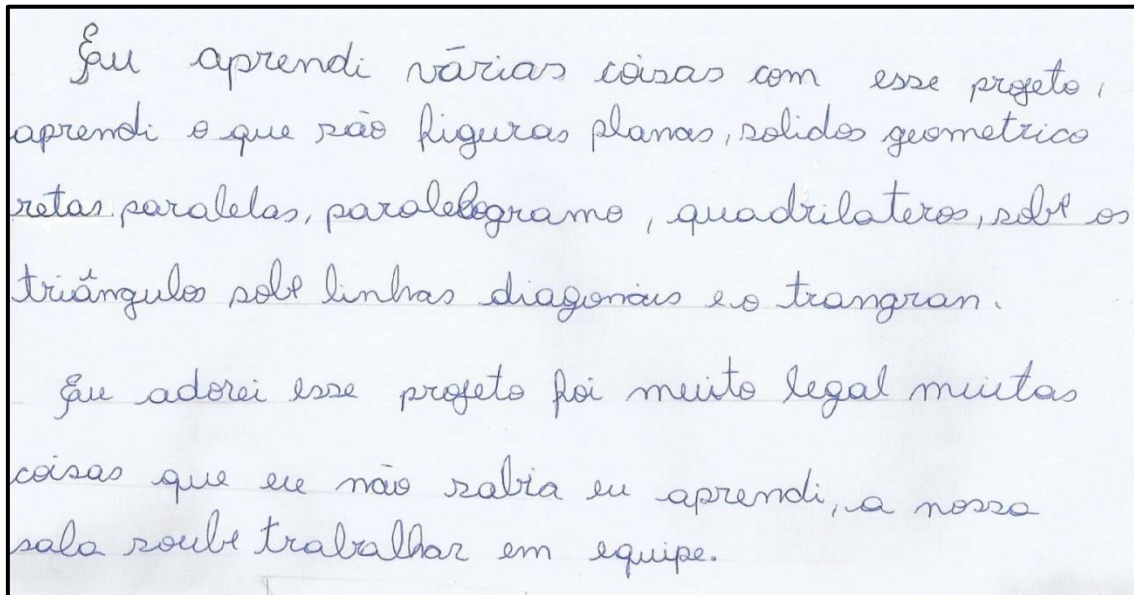 Eu aprendi várias coisas com esse projeto,
aprendi o que são figuras planas, solidos geometrico
retas paralelas, paralelogramo, quadrilateros, sobe os
triângulos sobe linhas diagonais e o trangran.
Eu adorei esse projeto foi muito legal muitas
coisas que eu não sabia eu aprendi, a nossa
sala soube trabalhar em equipe.